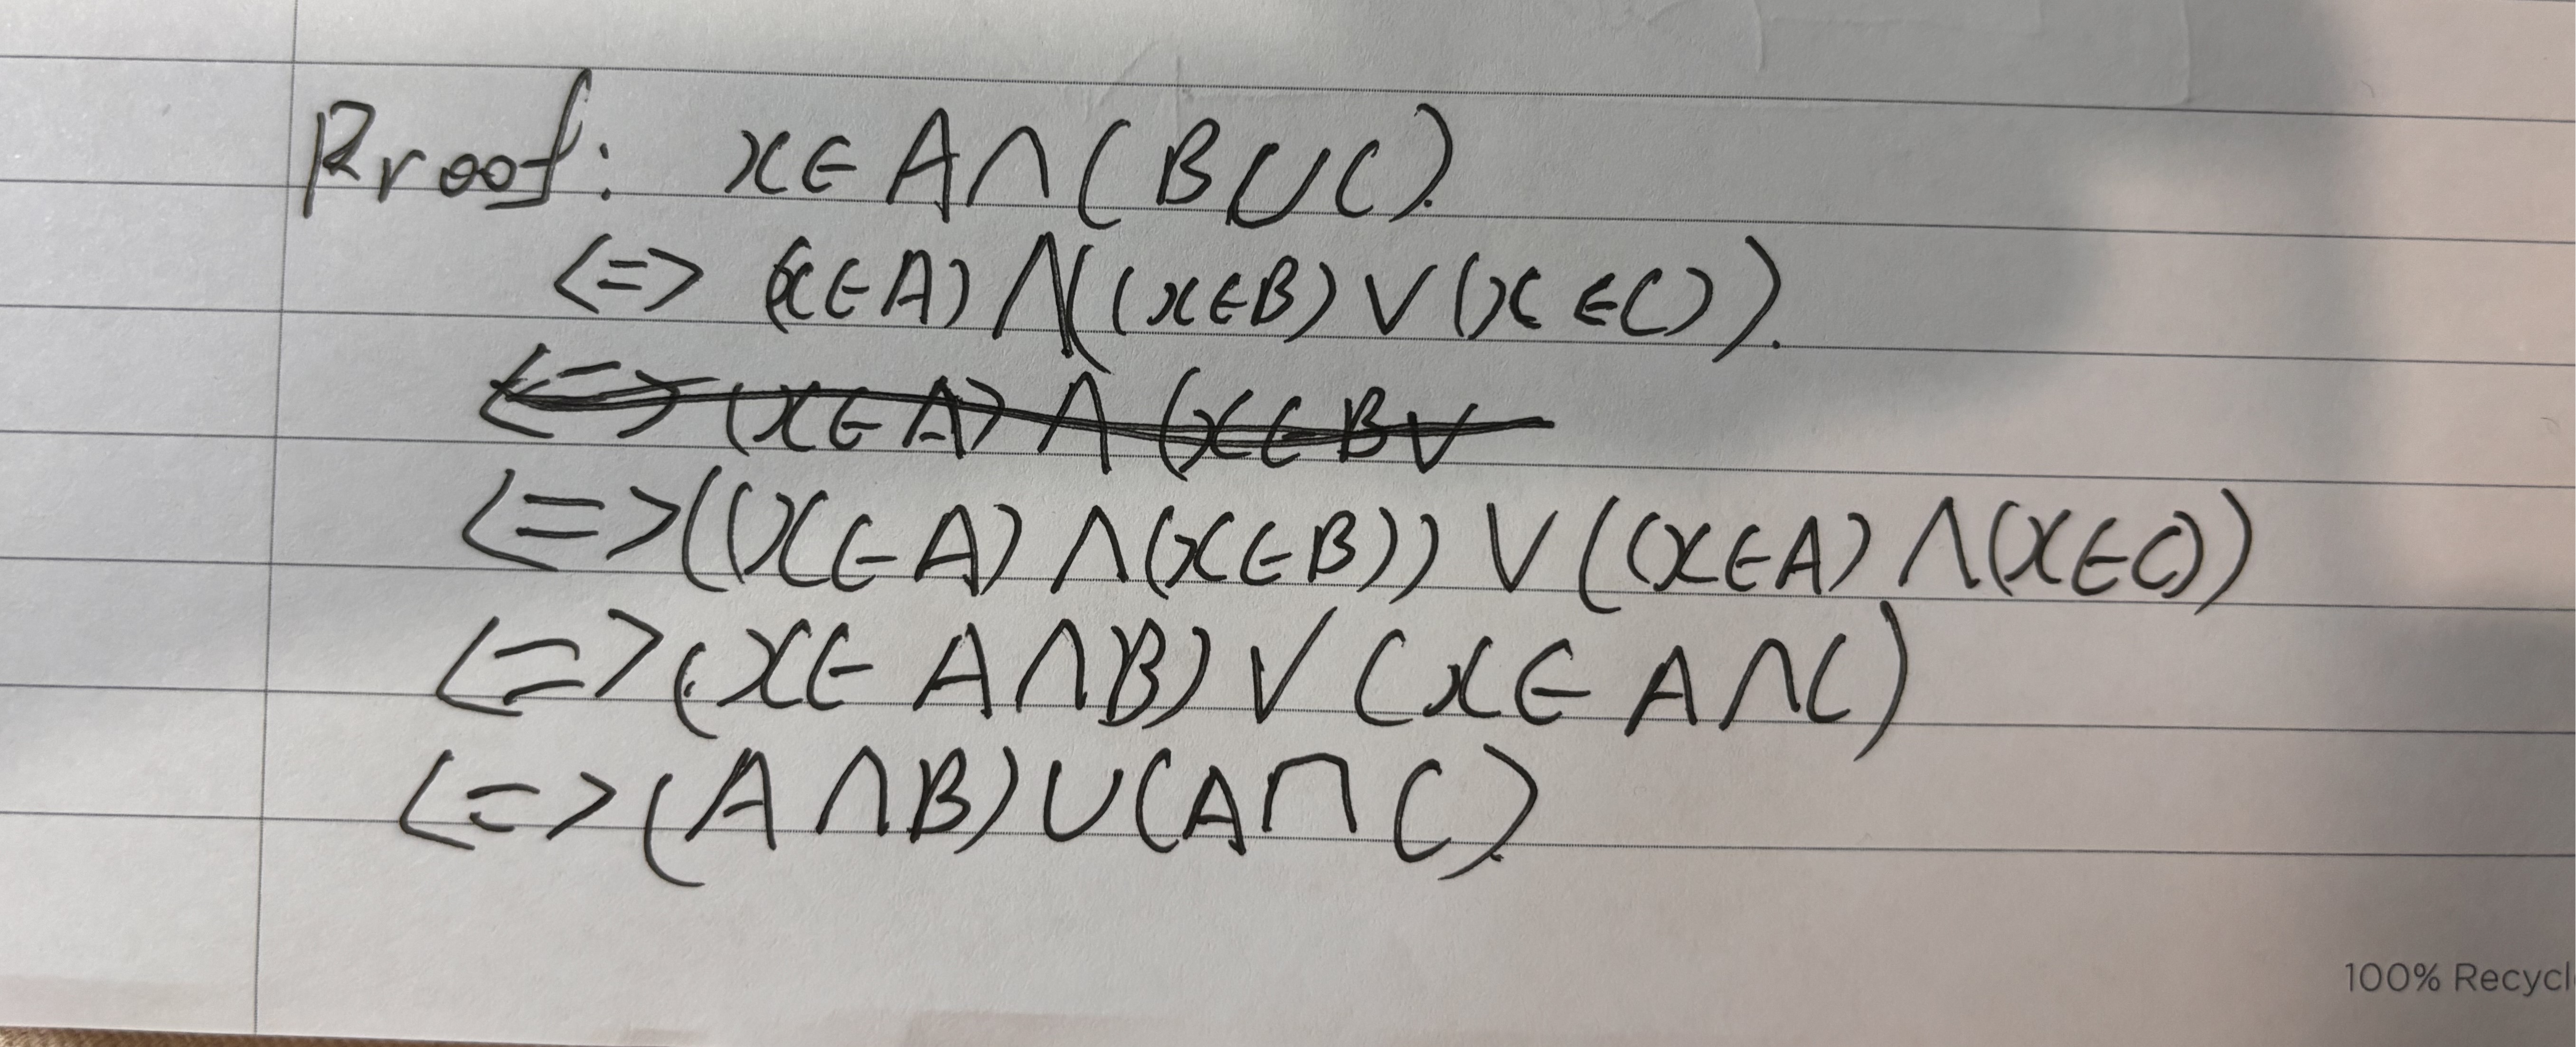 Proof: x∈A∩(B∪C).
<=> (x∈A)∧((x∈B)∨(x∈C)).
<=> (x∈A)∧(x∈B∨
<=>((x∈A)∧(x∈B))∨((x∈A)∧(x∈C))
<=>(x∈A∩B)∨(x∈A∩C)
<=>(A∩B)∪(A∩C).
100% Recycl